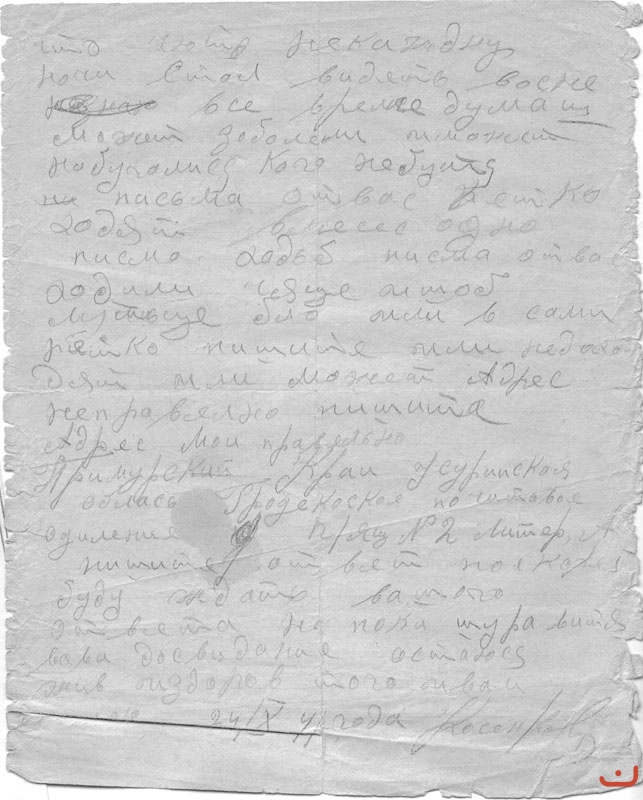 что чото некаждну
ночи стал видеть восне
все время думаиш
может заболели может
кого небутя
письма от вас ретко
ходят вмесес одно
писмо ходьб писма отвас
ходили чяще чтоб
лутьще бло или в сами
ретко пишите или недохо
дят или может Адрес
неправелно пишите
Адрес мои правельно
Примурский Краи Усуриская
область Гродекоское почтовое
одиление П/ящ № 2 Литер. А
пишите ответ поскорея
буду ждать вашего
ответа но пока
досвидание остаюся
жив издоров того ивам
24/IX 41 года